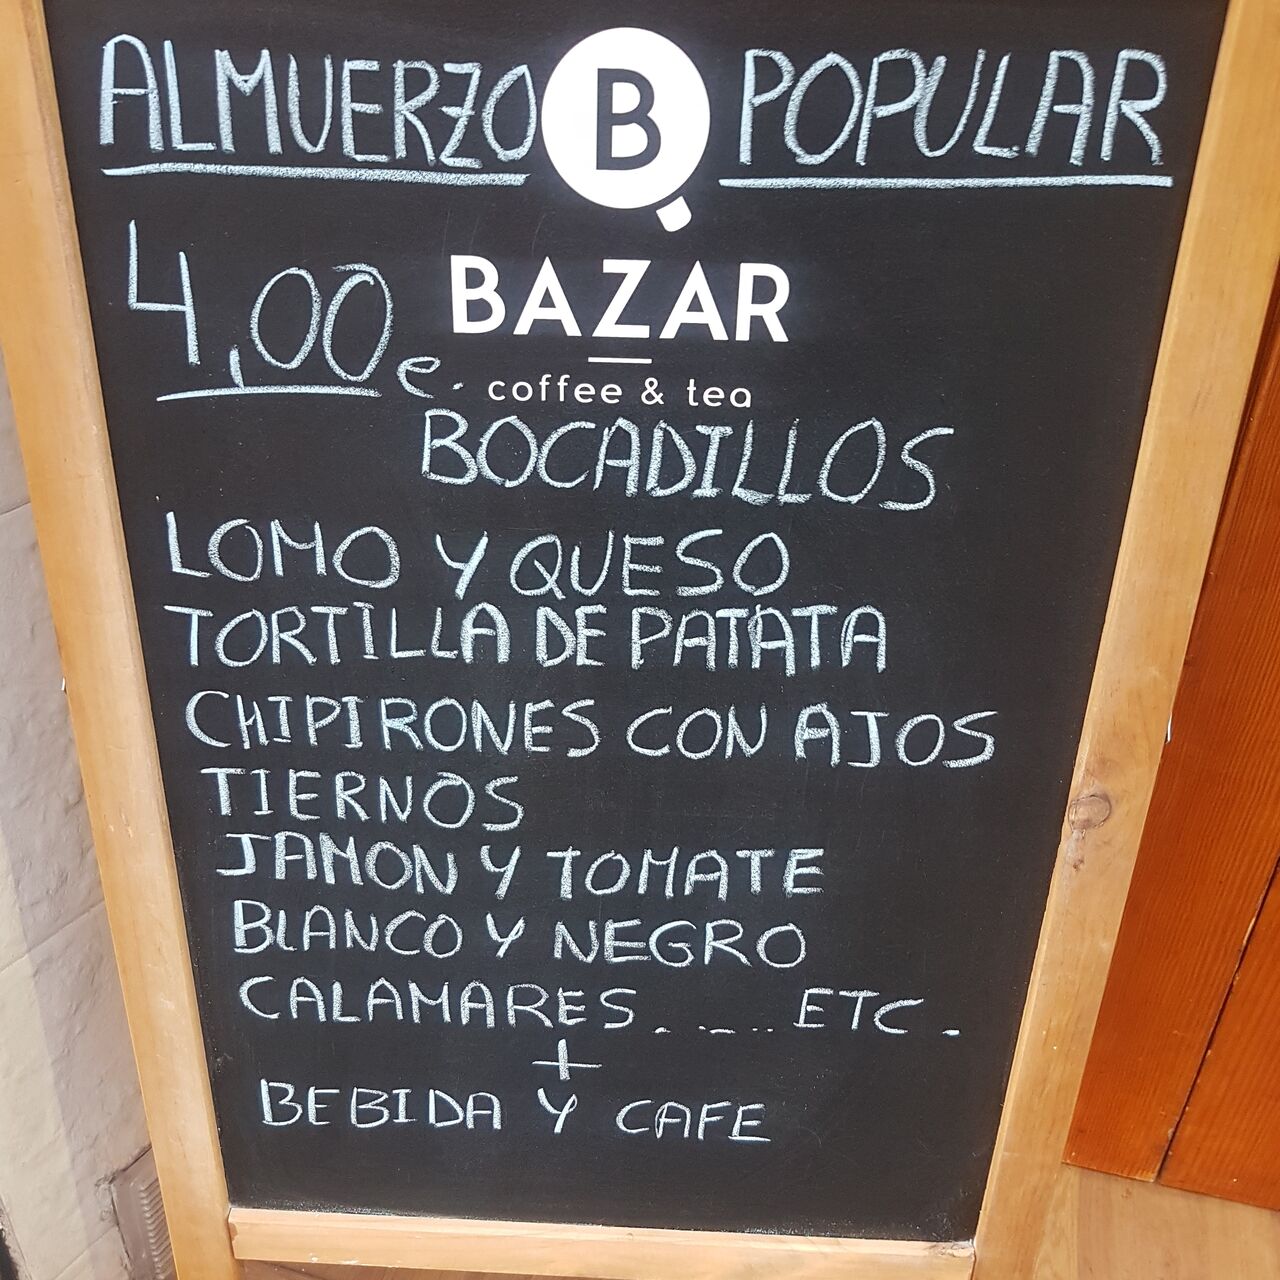 ALMUERZO B POPULAR
4,00 e.
BAZAR
coffee & tea
BOCADILLOS
LOMO Y QUESO
TORTILLA DE PATATA
CHIPIRONES CON AJOS
TIERNOS
JAMON Y TOMATE
BLANCO Y NEGRO
CALAMARES..... ETC.
+
BEBIDA Y CAFE